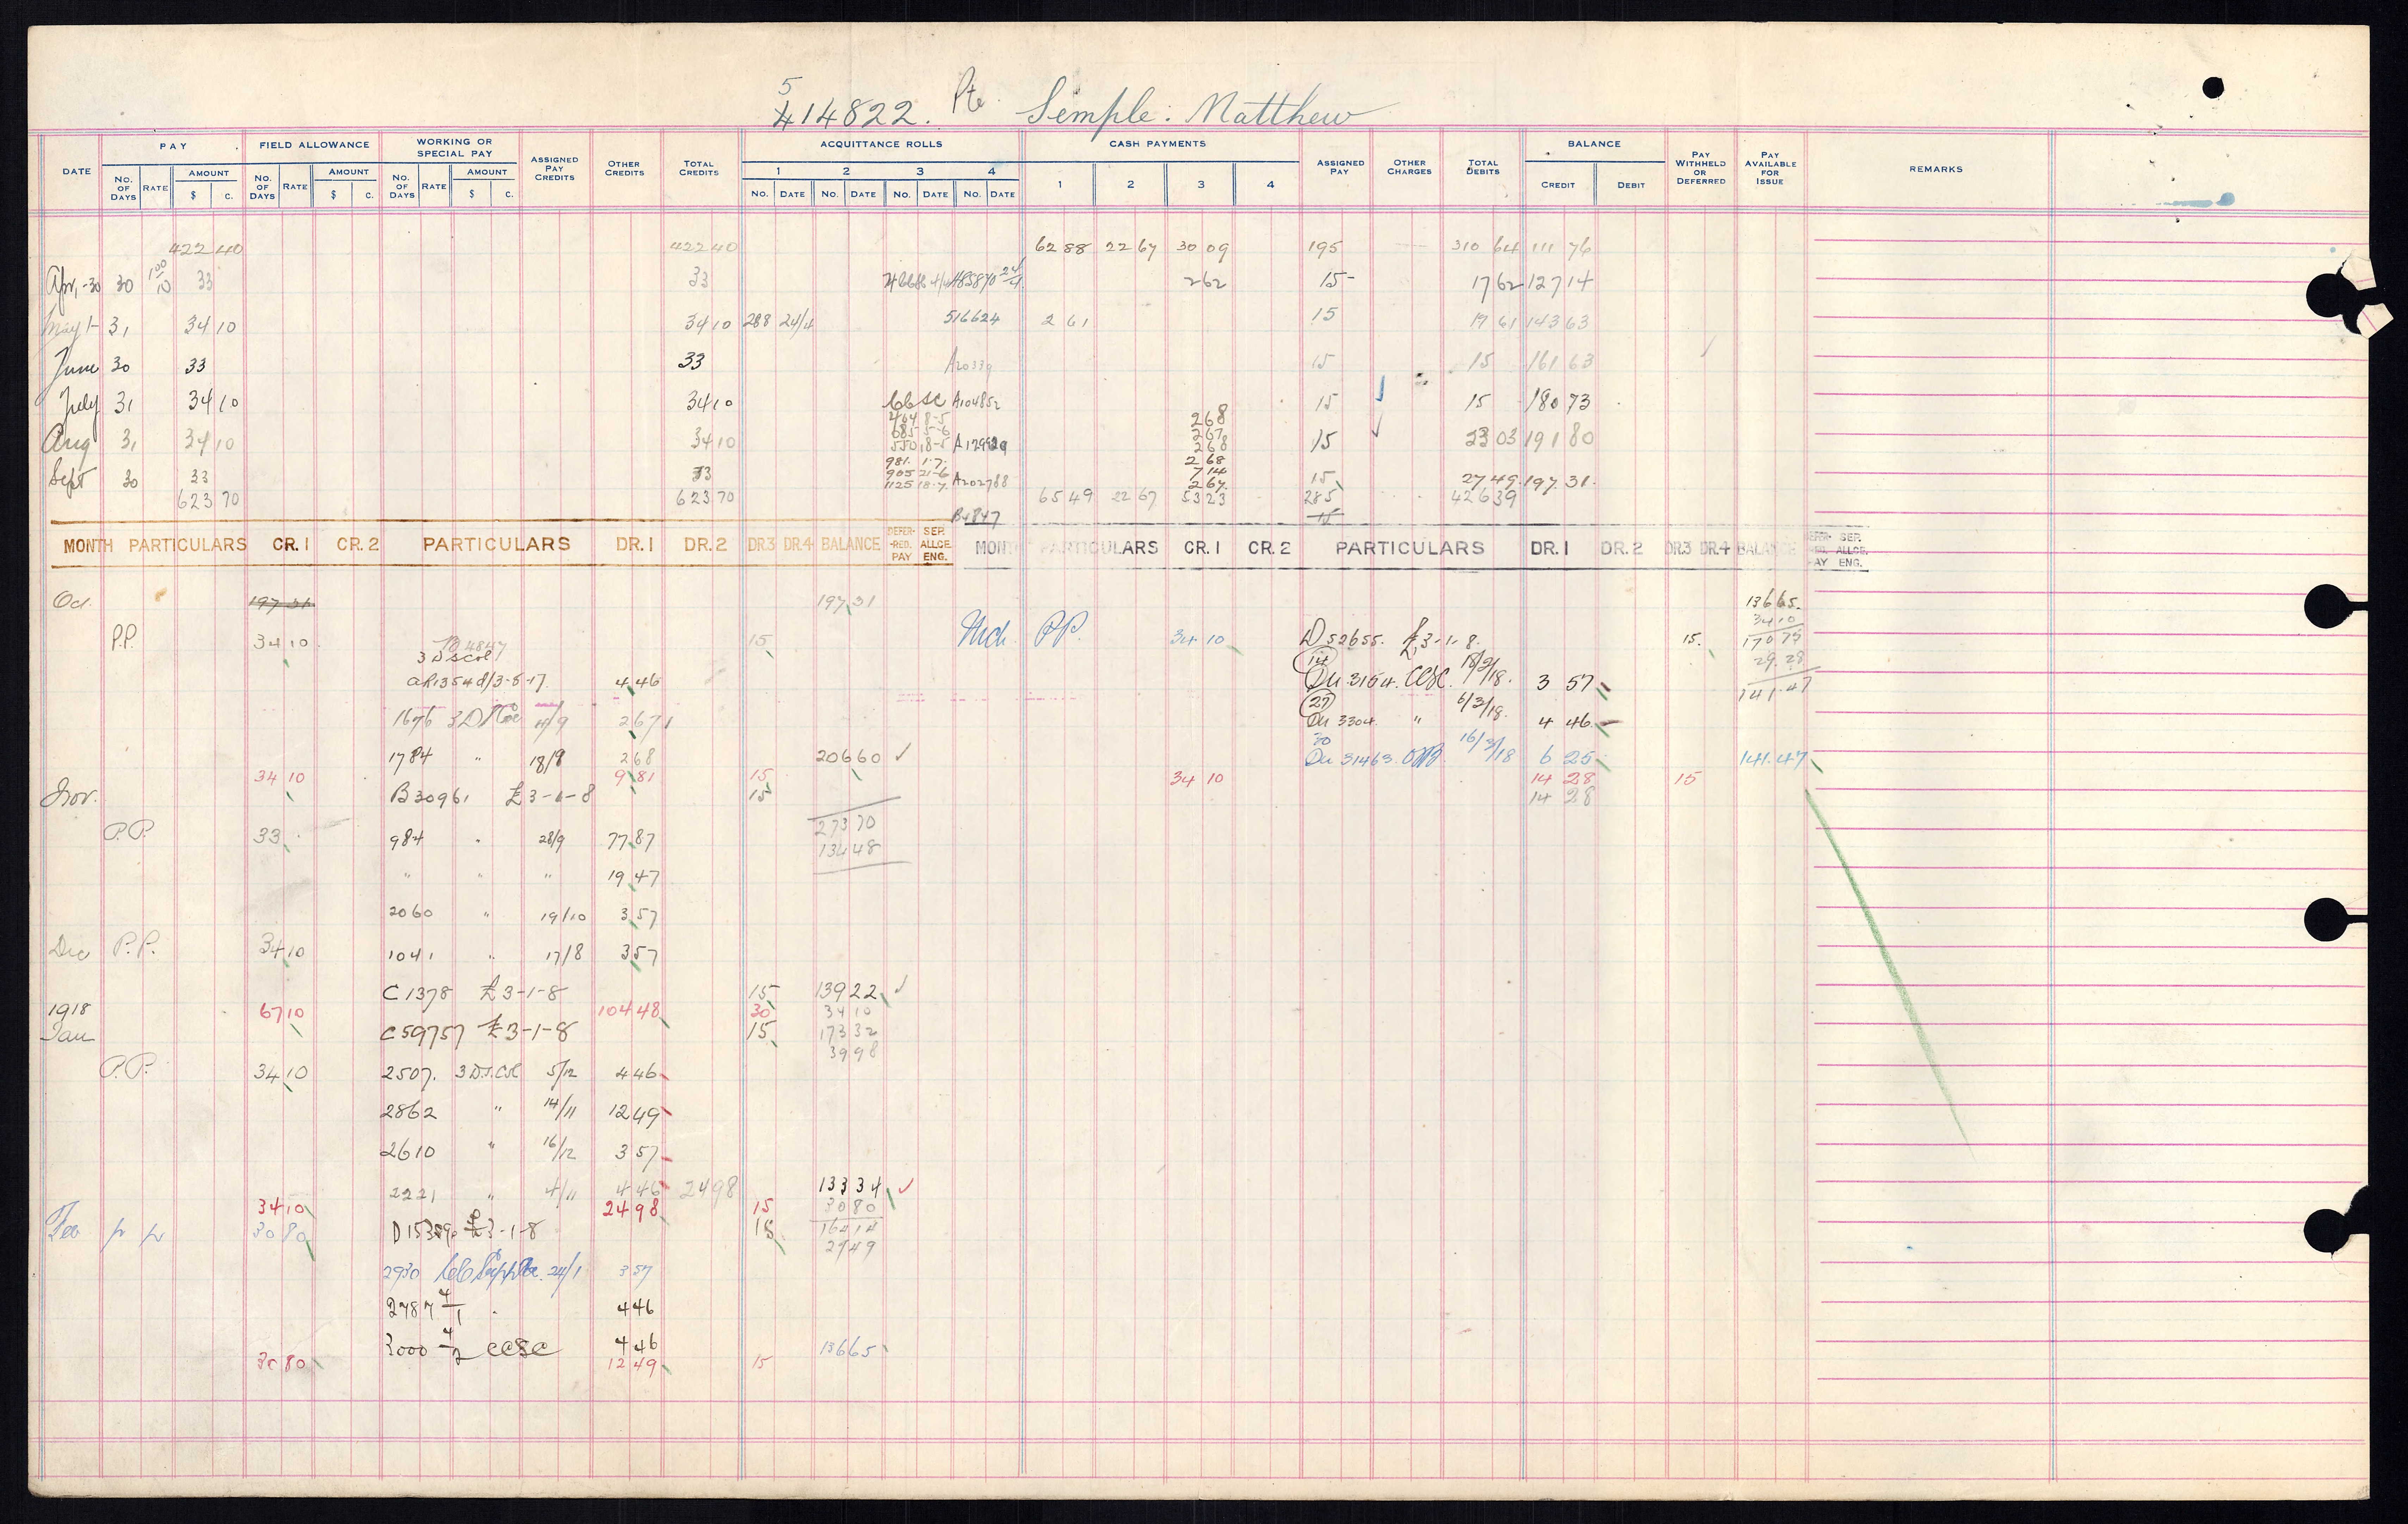 5
414822. Pte Semple: Matthew
DATE PAY FIELD ALLOWANCE WORKING OR SPECIAL PAY ASSIGNED PAY CREDITS OTHER CREDITS TOTAL CREDITS ACQUITTANCE ROLLS CASH PAYMENTS ASSIGNED PAY OTHER CHARGES TOTAL DEBITS BALANCE PAY WITHHELD OR DEFERRED PAY AVAILABLE FOR ISSUE REMARKS
NO. OF DAYS RATE AMOUNT $ C. NO. OF DAYS RATE AMOUNT $ C. NO. OF DAYS RATE AMOUNT $ C. 1 2 3 4 1 2 3 4 CREDIT DEBIT
NO. DATE NO. DATE NO. DATE NO. DATE
422 40 422 40 62 88 22 67 30 09 195 310 64 111 76
Apr, -30 30 1 00 10 33 33 2 62 15- 17 62 127 14
May 1- 31 34 10 34 10 288 24/4 516624 2 61 15 17 61 143 63
June 30 33 33 A20339 15 15 161 63
July 31 34 10 34 10 CCSC A104852 15 15 180 73
464 8-5 2 68
685 5-6 2 67
Aug 31 34 10 34 10 550 18-5 2 68 15 23 03 191 80
981 1-7 2 68
905 21-6 7 14
Sept 30 33 33 1125 18-7 A202788 2 67 15 27 49 197 31
623 70 623 70 65 49 22 67 53 23 285 426 39
B4847 15
MONTH PARTICULARS CR. 1 CR. 2 PARTICULARS DR. 1 DR. 2 DR.3 DR.4 BALANCE DEFER-RED. PAY SEP. ALLCE. ENG. MONTH PARTICULARS CR. 1 CR. 2 PARTICULARS DR. 1 DR. 2 DR.3 DR.4 BALANCE DEFER-RED. PAY SEP. ALLCE. ENG.
Oct. 197 31 197 31 136 65
34 10
P.P. 34 10 B4847 15 Mch. P.P. 34 10 D52655. £3-1-8. 15 170 75
3 D S Col 14 29 28
AR1354 d/3-5-17 4 46 3154. CCSC. 18/2/18. 3 57 141 47
27
1676 3 D S Col 4/9 2 67 3304. " 6/3/18. 4 46
30
1784 " 18/9 2 68 206 60 31463 16/3/18 6 25 141.47
34 10 9 81 15 34 10 14 28 15
Nov. B30961 £3-1-8 15 14 28
273 70
P.P. 33 984 " 28/9 77 87 134 48
" " " 19 47
2060 " 19/10 3 57
Dec P.P. 34 10 1041 " 17/8 3 57
C1378 £3-1-8 15 139 22
1918 67 10 104 48 30 34 10
Jan C59757 £3-1-8 15 173 32
39 98
P.P. 34 10 2507. 3 D.S. Col 5/12 4 46
2862 " 14/11 12 49
2610 " 16/12 3 57
2221 " 4/11 4 46 24 98 133 34
34 10 24 98 15 30 80
Feb p p 30 80 £3-1-8 15 164 14
27 49
2930 24/1 3 57
2787 4/1 " 4 46
3000 4/2 CCSC 4 46 136 65
30 80 12 49 15